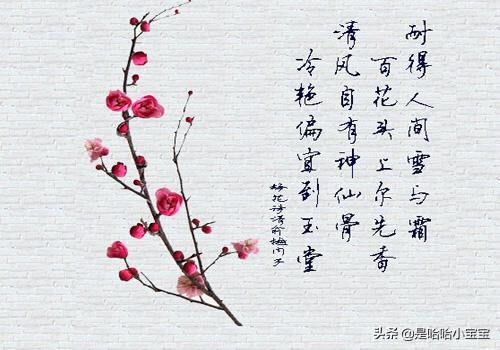 耐得人间雪与霜
百花头上尔先香
清风自有神仙骨
冷艳偏宜到玉堂
梅花诗清俞梅内子
头条 @是哈哈小宝宝